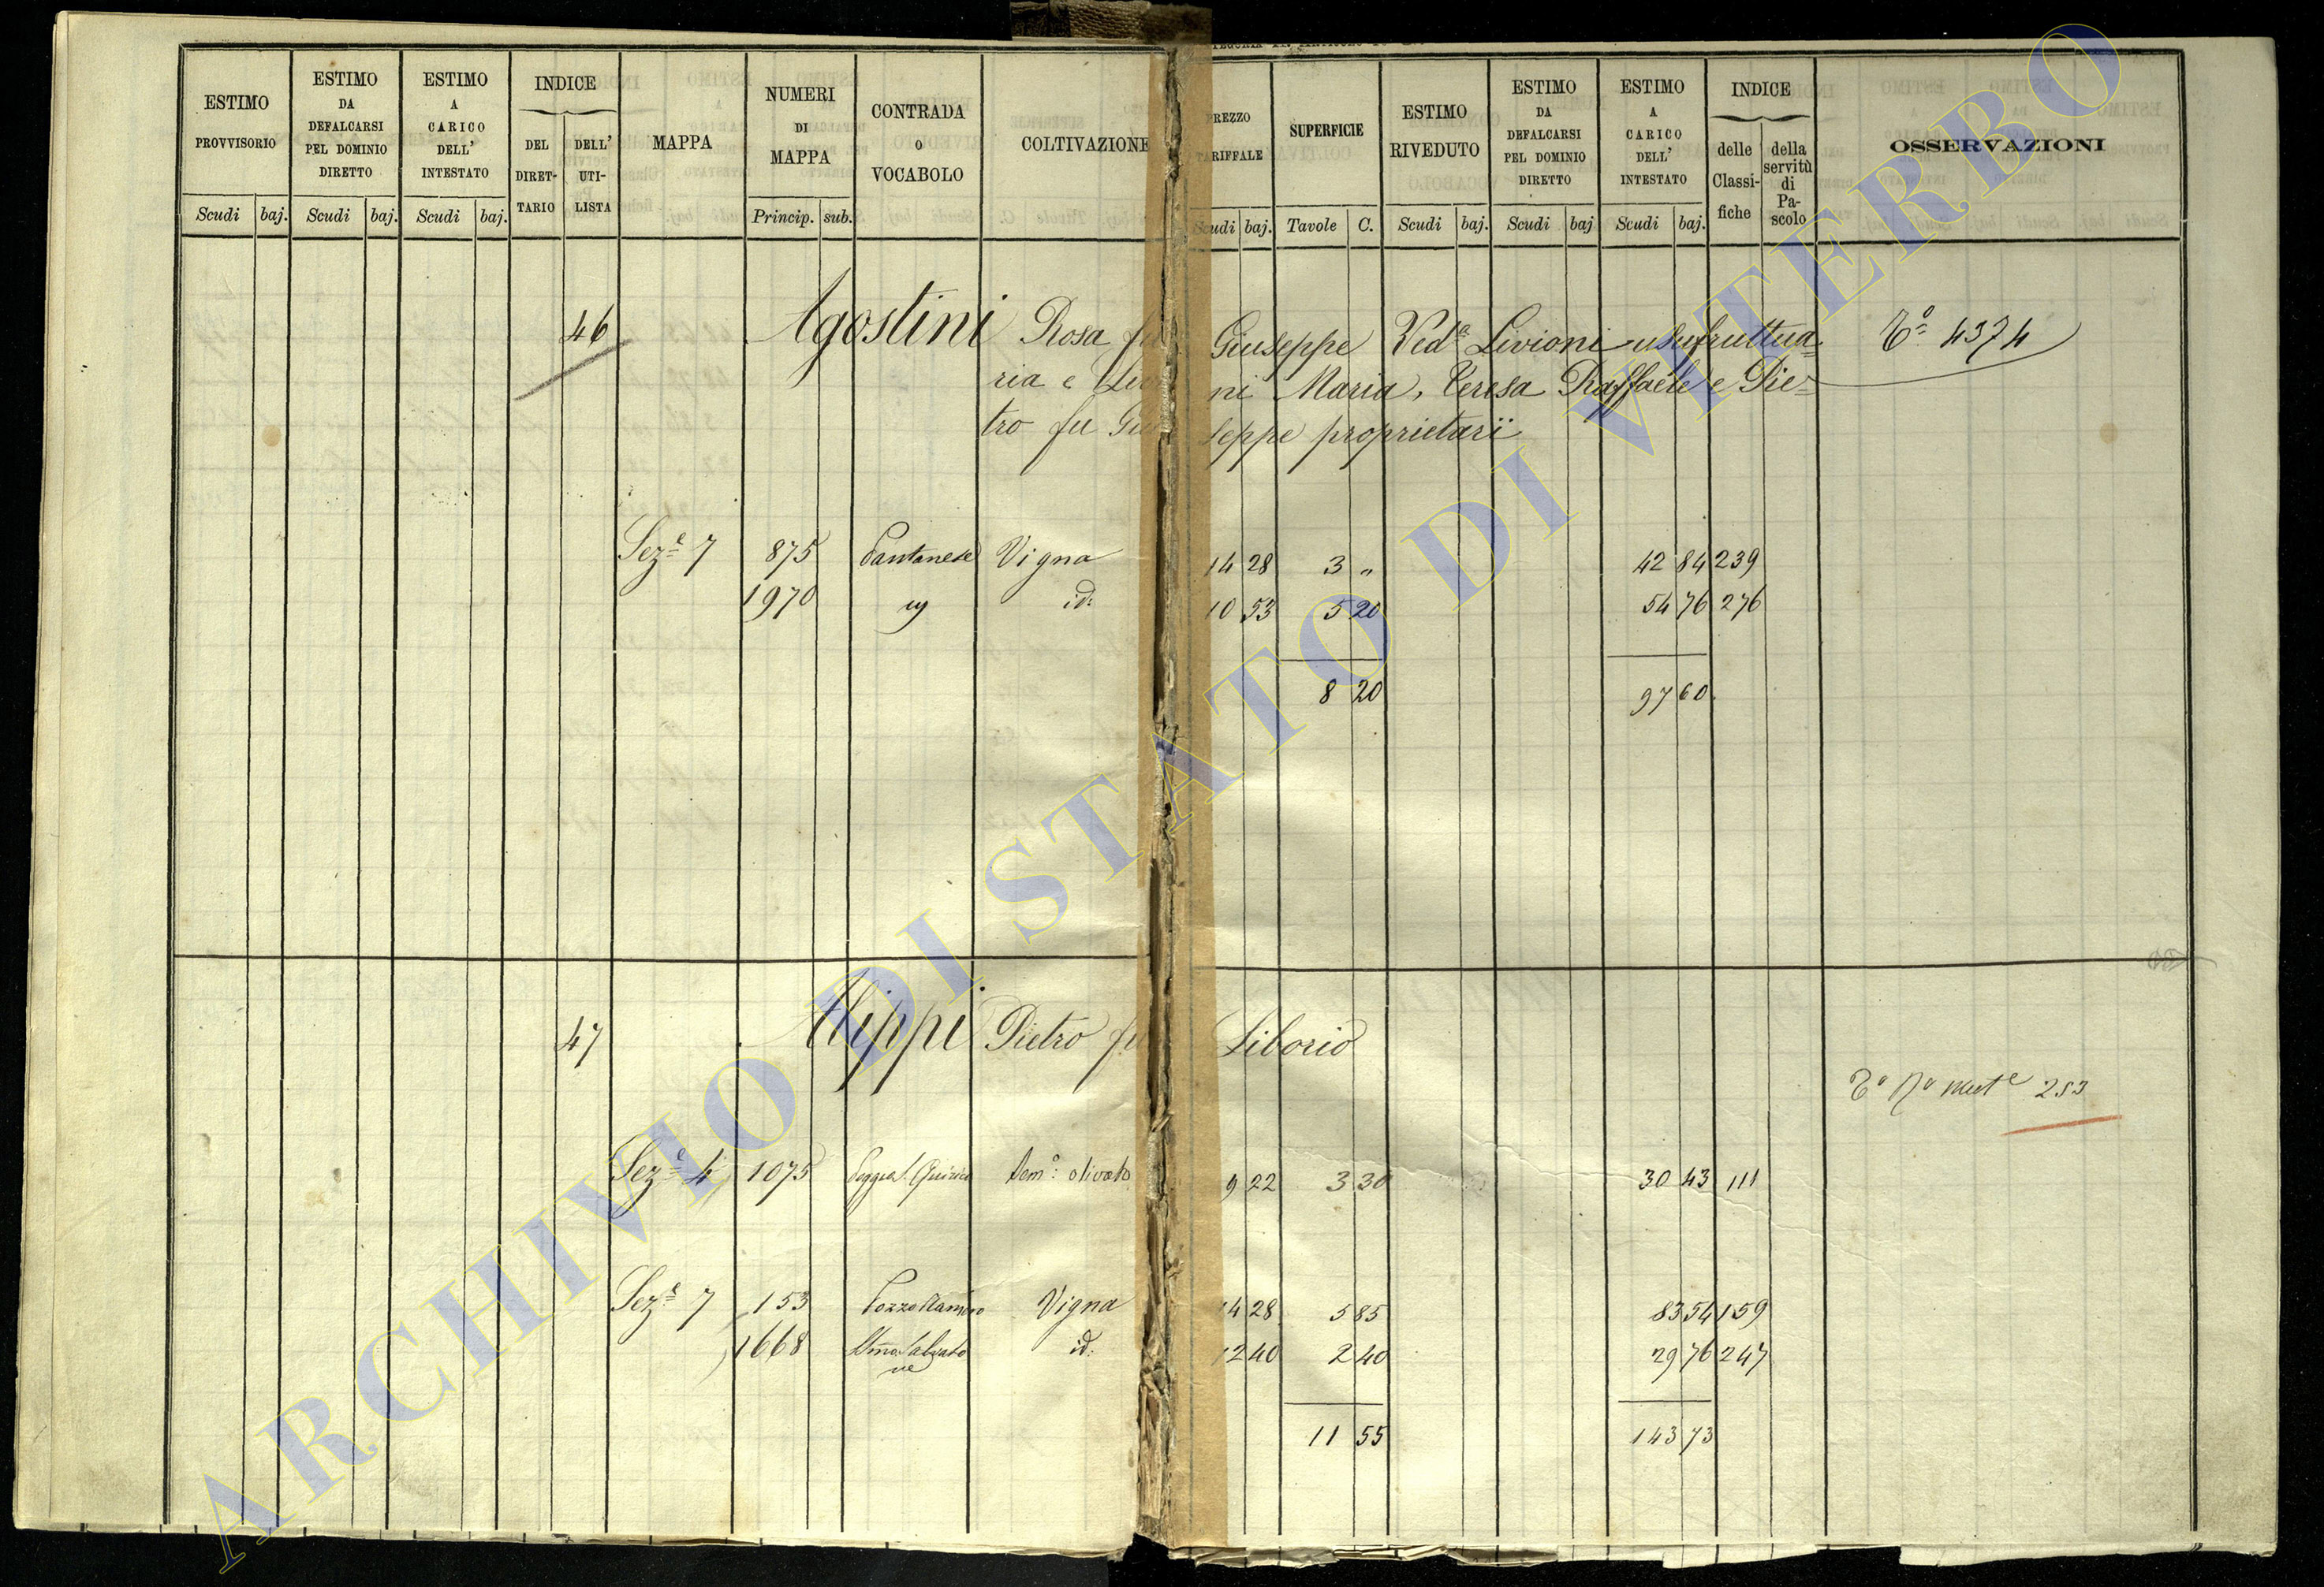 ESTIMO PROVVISORIO
ESTIMO DA DEFALCARSI PEL DOMINIO DIRETTO
ESTIMO A CARICO DELL' INTESTATO
INDICE
DEL DIRETTARIO
DELL' UTILISTA
MAPPA
NUMERI DI MAPPA
CONTRADA O VOCABOLO
COLTIVAZIONE
PREZZO TARIFFALE
SUPERFICIE
ESTIMO RIVEDUTO
ESTIMO DA DEFALCARSI PEL DOMINIO DIRETTO
ESTIMO A CARICO DELL' INTESTATO
INDICE
delle Classifiche
della servitù di Pascolo
OSSERVAZIONI
Scudi baj. Scudi baj. Scudi baj. Princip. sub. Scudi baj. Tavole C. Scudi baj. Scudi baj Scudi baj.
46 Agostini Rosa fu Giuseppe Ved.ª Livioni usufruttua= Tº 4374
ria e Livioni Maria, Teresa Raffaele e Pie=
tro fu Giuseppe proprietarï
Sez.e 7 875 Pantanese Vigna 14 28 3 " 42 84 239
1970 id: 10 53 5 20 54 76 276
8 20 97 60
47 Alippi Pietro fu Liborio
Tº Nº 253
Sez.e 4 1075 Sem.º olivato 9 22 3 30 30 43 111
Sez.e 7 153 Vigna 14 28 5 85 83 54 159
1668 id: 12 40 2 40 29 76 247
11 55 143 73
ARCHIVIO DI STATO DI VITERBO